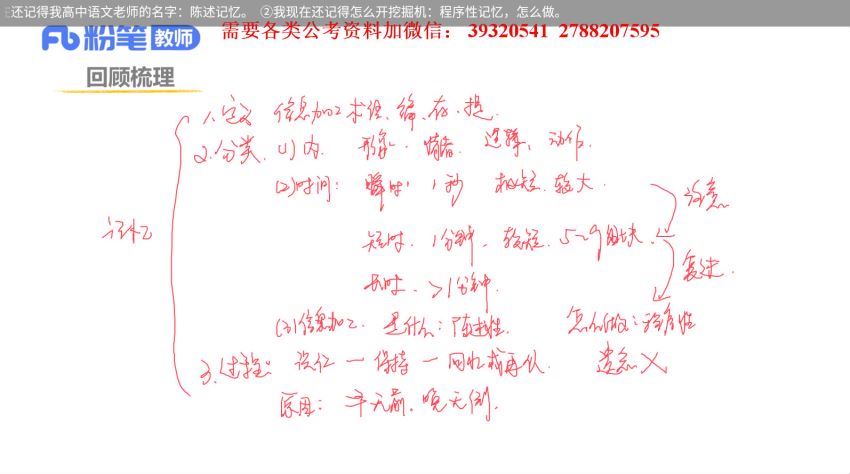 还记得我高中语文老师的名字：陈述记忆。 ②我现在还记得怎么开挖掘机：程序性记忆，怎么做。
粉笔教师
需要各类公考资料加微信： 39320541 2788207595
回顾梳理
1.定义 信息加工术语、编、存、提
2.分类 (1)内 形象、情绪、逻辑、动作
(2)时间：瞬时 1秒 极短 较大
注意
短时 1分钟 较短 5-9组块
复述
长时 >1分钟
记忆
(3)信息加工 是什么：陈述性 怎么做：程序性
3.过程：识记 — 保持 — 回忆或再认 遗忘 X
原因：早无前、晚无倒